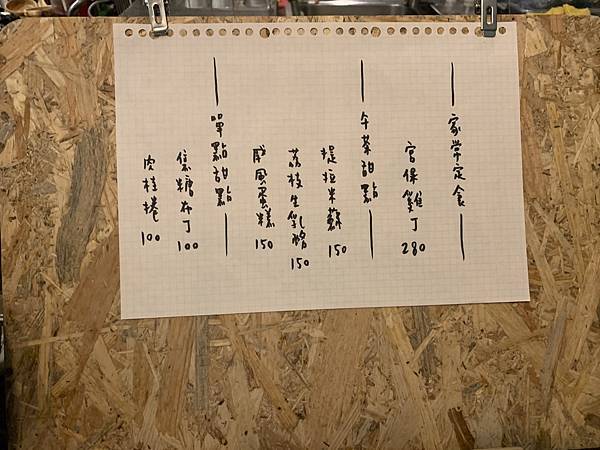 家常定食
宮保雞丁 280
午茶甜點
提拉米蘇 150
荔枝生乳酪 150
戚風蛋糕 150
單點甜點
焦糖布丁 100
肉桂捲 100